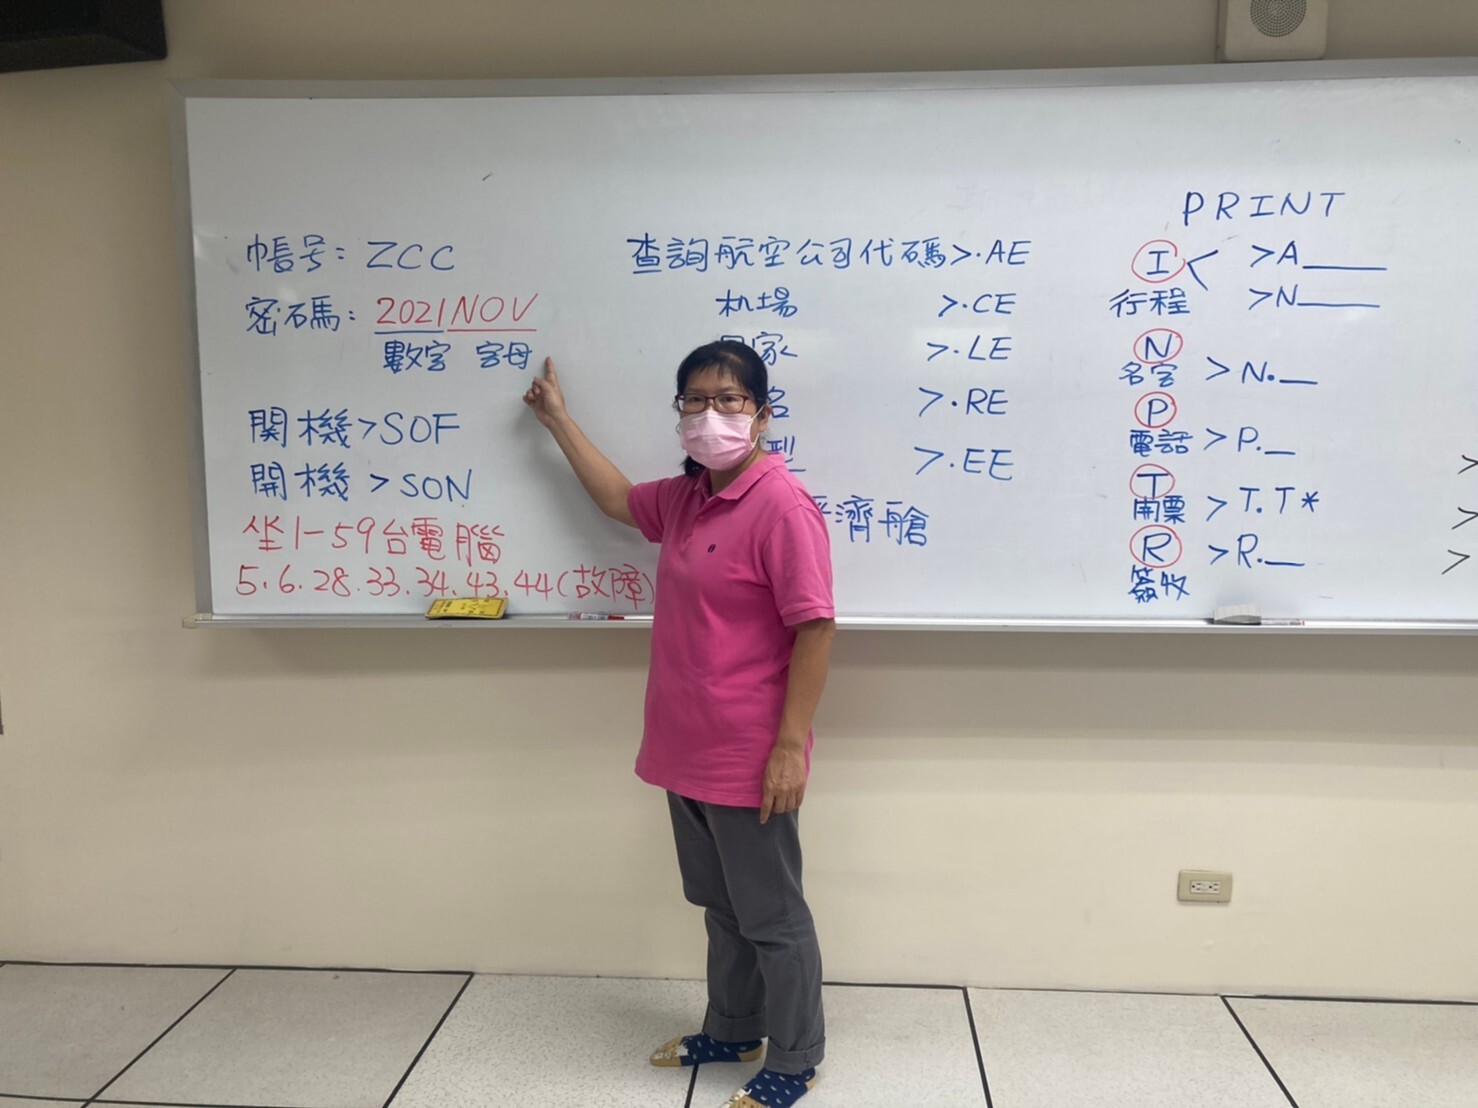 帳号：ZCC
密碼：2021NOV
數字 字母
開機>SOF
開機>SON
坐1-59台電腦
5.6.28.33.34.43.44(故障)
查詢航空公司代碼>.AE
机場 >.CE
家 >.LE
名 >.RE
型 >.EE
濟艙
PRINT
I < >A____
行程 >N____
N
名字 >N.__
P
電話 >P.__
T
開票 >T.T*
R >R.__
簽收
>
>
>